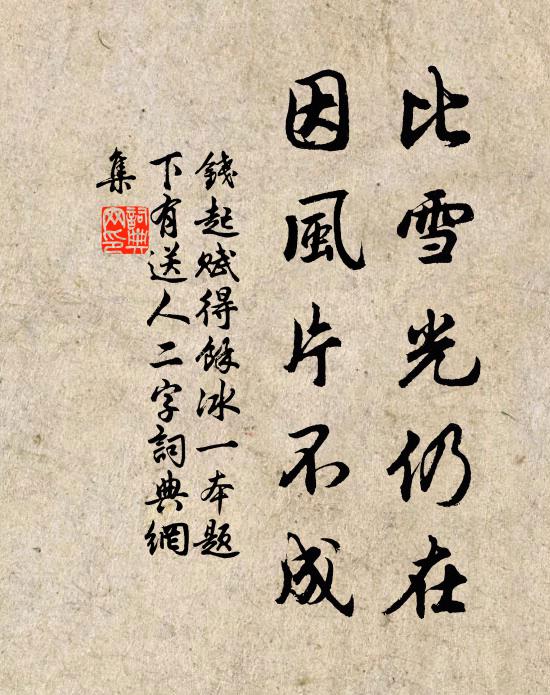 比雪光仍在
因風片不成
錢起賦得餘冰一本題
下有送人二字詞典網
集
詞典
网印